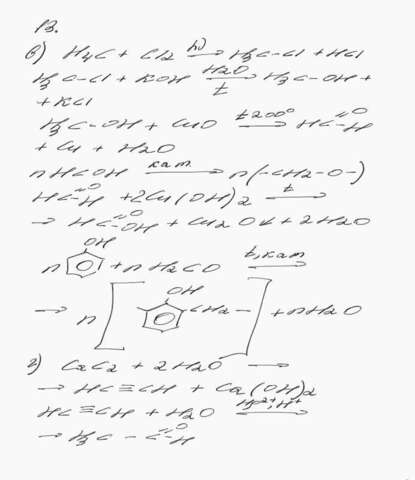 13.
в) H₄C + Cl₂ —hν→ H₃C–Cl + HCl
H₃C–Cl + KOH —H₂O, t→ H₃C–OH +
+ KCl
H₃C–OH + CuO —t 200°→ HC(=O)–H
+ Cu + H₂O
nHCOH —кат.→ n(–CH₂–O–)
HC(=O)–H + 2Cu(OH)₂ —t→
→ HC(=O)–OH + Cu₂O↓ + 2H₂O
OH
n + nH₂CO —t, кат→
OH
→ n [ CH₂– ] + nH₂O
г) CaC₂ + 2H₂O →
→ HC≡CH + Ca(OH)₂
HC≡CH + H₂O —Hg²⁺, H⁺→
→ H₃C–C(=O)–H